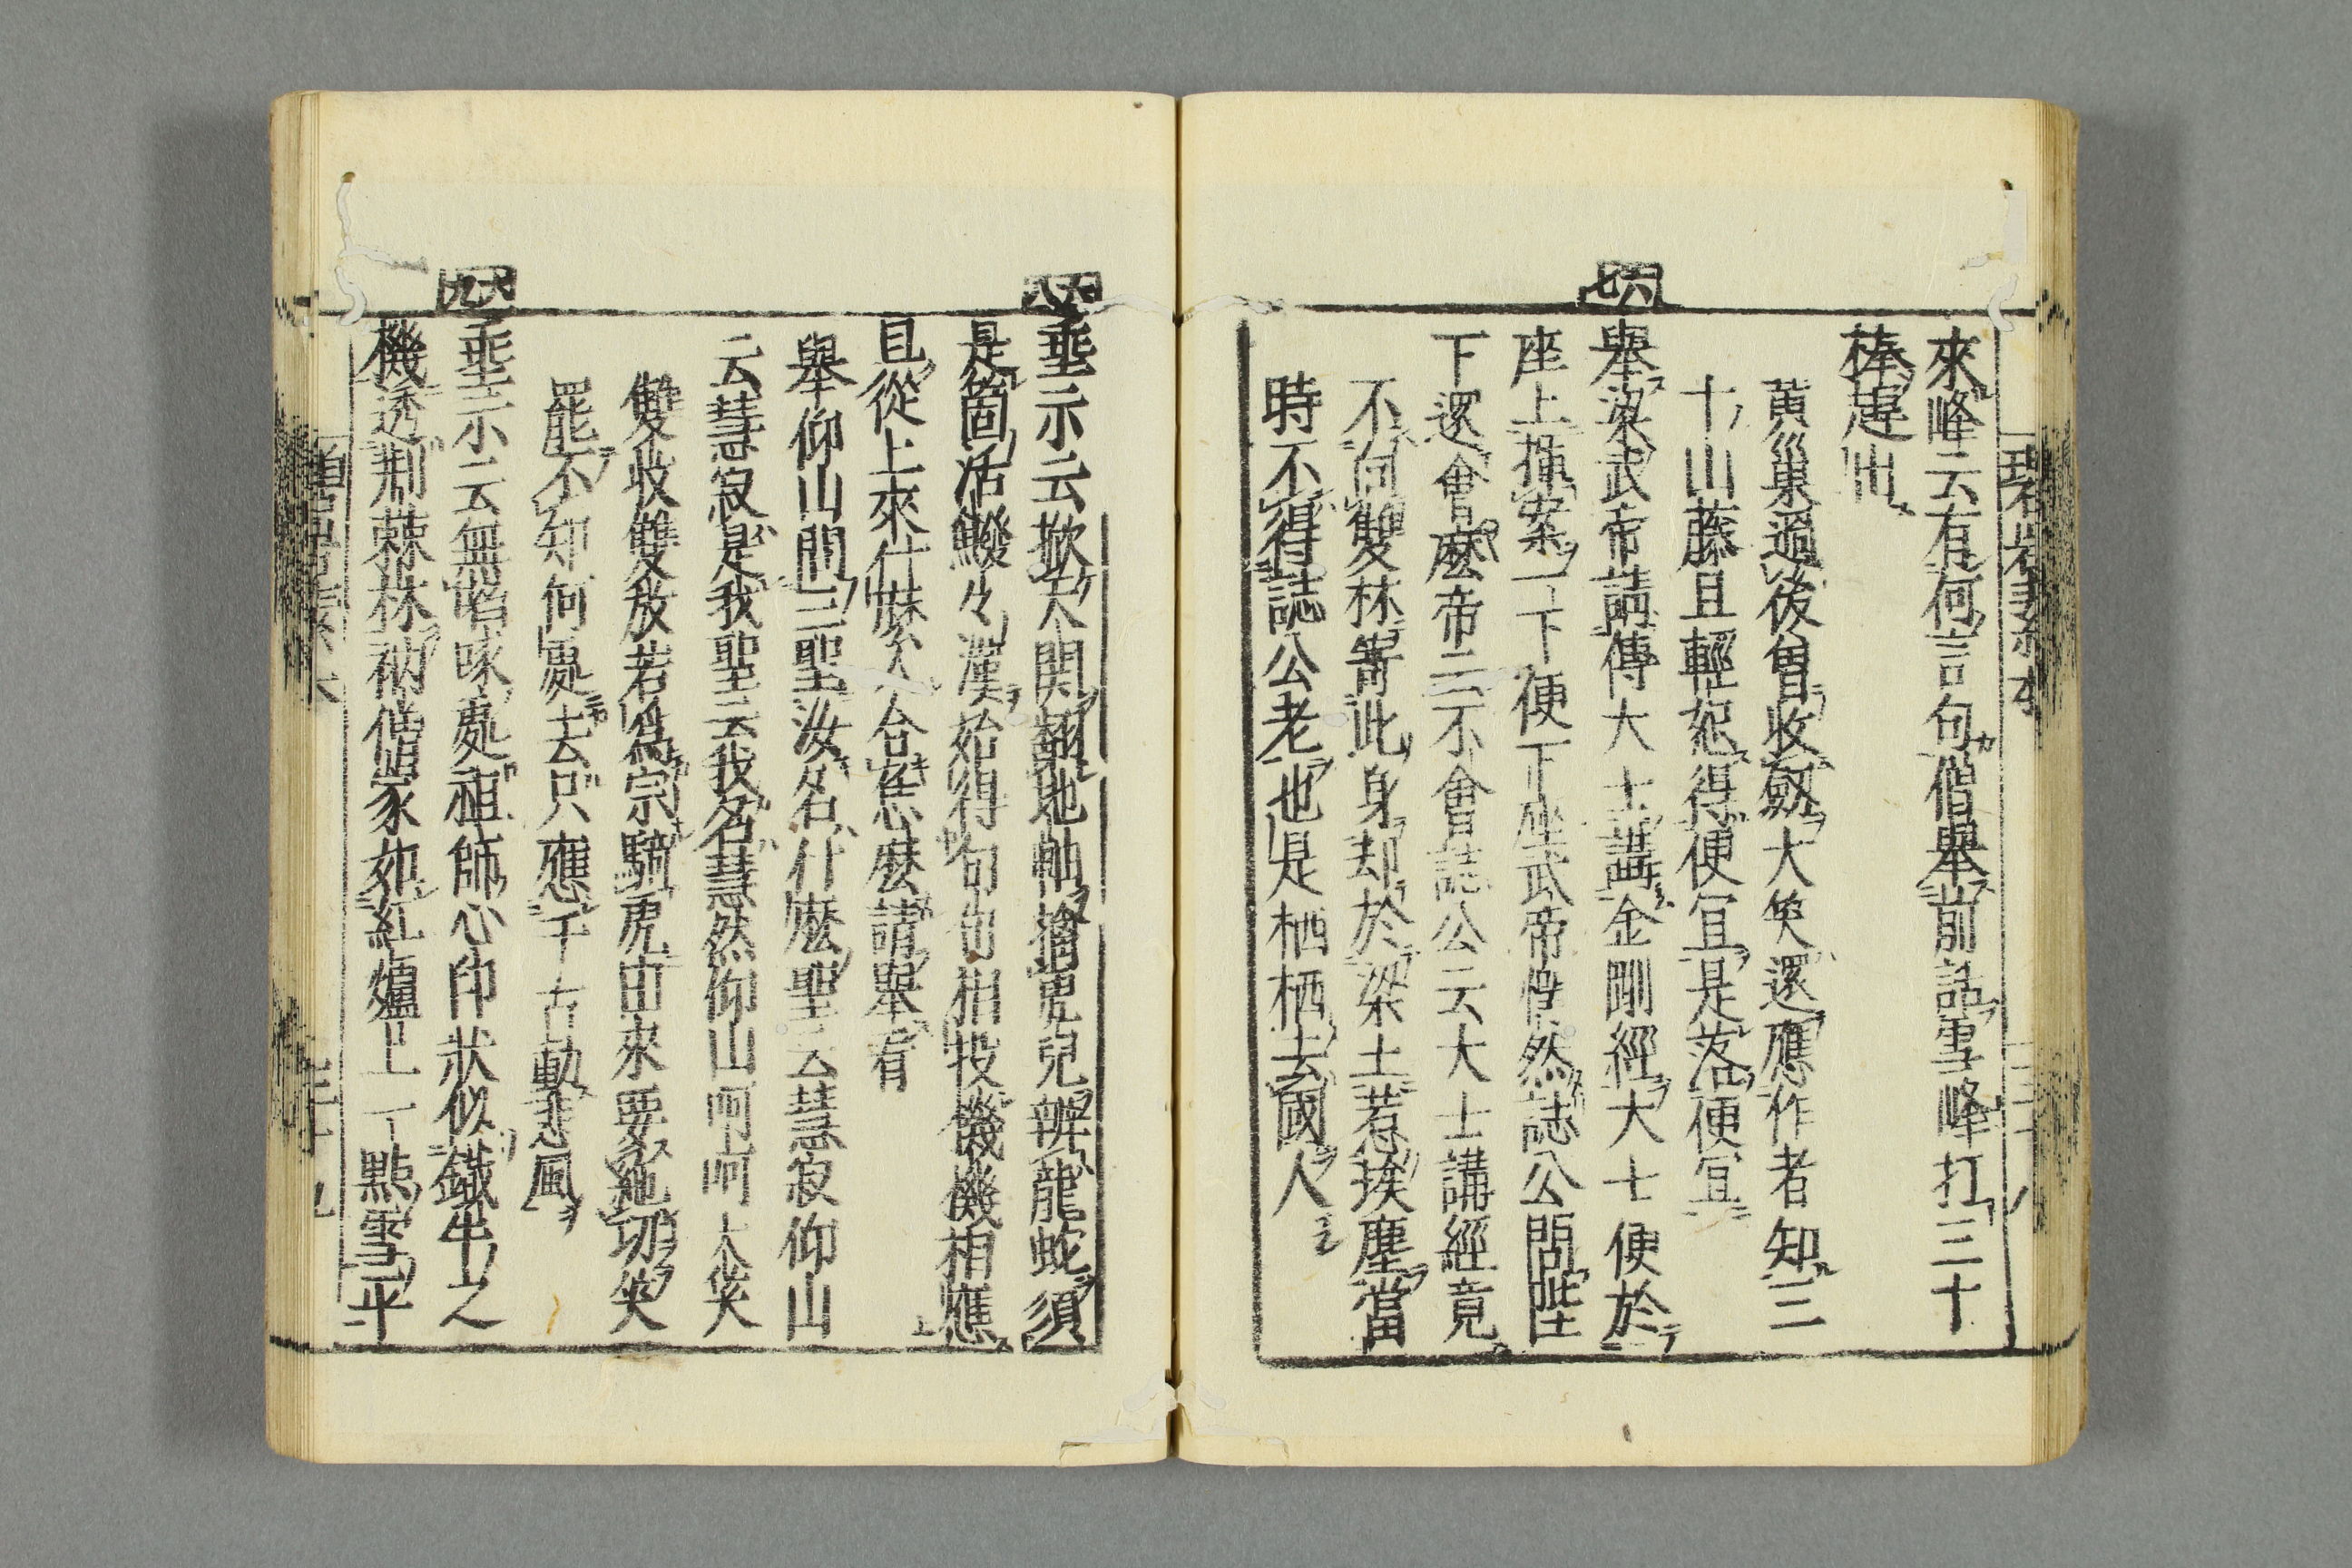 來峰云有何言句僧舉前話雪峰打三十
棒趕出
黃巢過後曾收劔大笑還應作者知三
十山藤且輕恕得便宜是落便宜
六七
舉梁武帝請傅大士講金剛經大士便於
座上揮案一下便下座武帝愕然誌公問陛
下還會麼帝云不會誌公云大士講經竟
不向雙林寄此身却於梁土惹埃塵當
時不得誌公老也是栖栖去國人
六八
垂示云掀天關翻地軸擒虎兕辨龍蛇須
是箇活鱍々漢始得句句相投機機相應
且從上來什麼人合恁麼請舉看
舉仰山問三聖汝名什麼聖云慧寂仰山
云慧寂是我聖云我名慧然仰山呵呵大笑
雙收雙放若爲宗騎虎由來要絶功笑
罷不知何處去只應千古動悲風
六九
垂示云無啗啄處祖師心印狀似鐵牛之
機透荆棘林衲僧家如紅爐上一點雪平